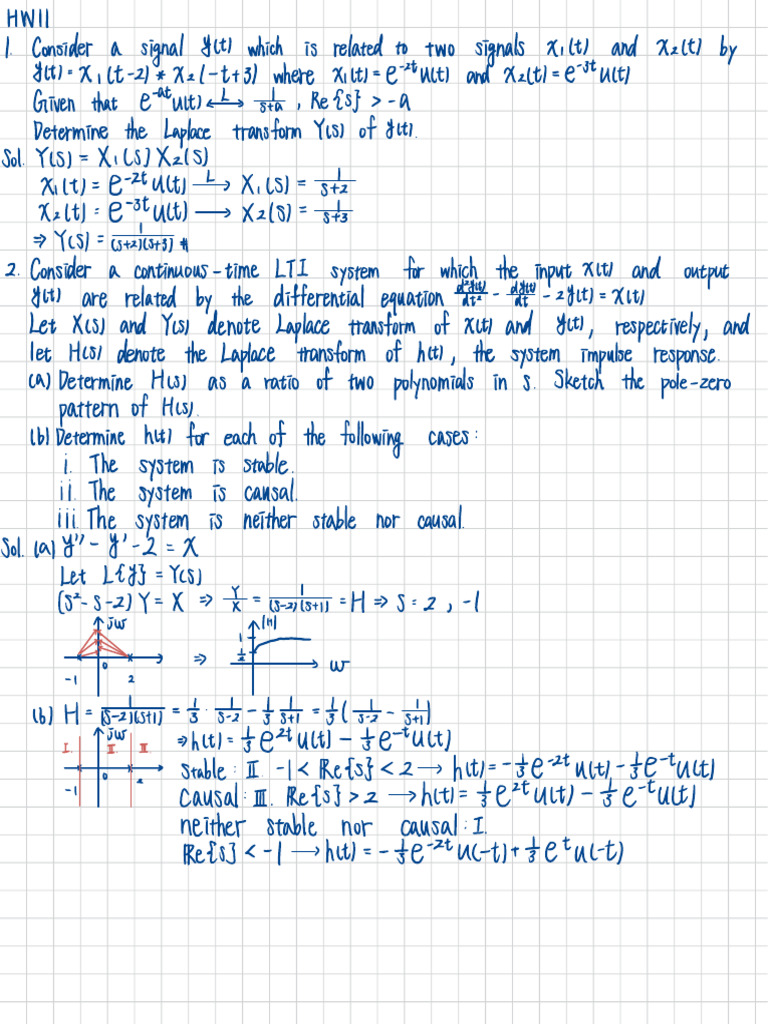 HW11
1. Consider a signal y(t) which is related to two signals x₁(t) and x₂(t) by
y(t) = x₁(t-2) * x₂(-t+3) where x₁(t) = e^{-2t}u(t) and x₂(t) = e^{-3t}u(t)
Given that e^{-at}u(t) ⟷^{L} 1/(s+a), Re{s} > -a
Determine the Laplace transform Y(s) of y(t).
Sol. Y(s) = X₁(s) X₂(s)
x₁(t) = e^{-2t}u(t) →^{L} X₁(s) = 1/(s+2)
x₂(t) = e^{-3t}u(t) → X₂(s) = 1/(s+3)
⇒ Y(s) = 1/((s+2)(s+3)) #
2. Consider a continuous-time LTI system for which the input x(t) and output
y(t) are related by the differential equation d²y(t)/dt² - dy(t)/dt - 2y(t) = x(t)
Let X(s) and Y(s) denote Laplace transform of x(t) and y(t), respectively, and
let H(s) denote the Laplace transform of h(t), the system impulse response.
(a) Determine H(s) as a ratio of two polynomials in s. Sketch the pole-zero
pattern of H(s).
(b) Determine h(t) for each of the following cases:
i. The system is stable.
ii. The system is causal.
iii. The system is neither stable nor causal.
Sol. (a) y'' - y' - 2 = x
Let L{y} = Y(s)
(s²-s-2) Y = X ⇒ Y/X = 1/((s-2)(s+1)) = H ⇒ s = 2, -1
jw |H|
1
1/2
⇒ w
-1 0 2
(b) H = 1/((s-2)(s+1)) = 1/3 · 1/(s-2) - 1/3 1/(s+1) = 1/3 (1/(s-2) - 1/(s+1))
jw
I. II. III.
-1 0 2
⇒ h(t) = 1/3 e^{2t} u(t) - 1/3 e^{-t} u(t)
Stable: II. -1 < Re{s} < 2 → h(t) = -1/3 e^{-2t} u(t) - 1/3 e^{-t} u(t)
Causal: III. Re{s} > 2 → h(t) = 1/3 e^{2t} u(t) - 1/3 e^{-t} u(t)
neither stable nor causal: I.
Re{s} < -1 → h(t) = -1/3 e^{-2t} u(-t) + 1/3 e^{t} u(-t)